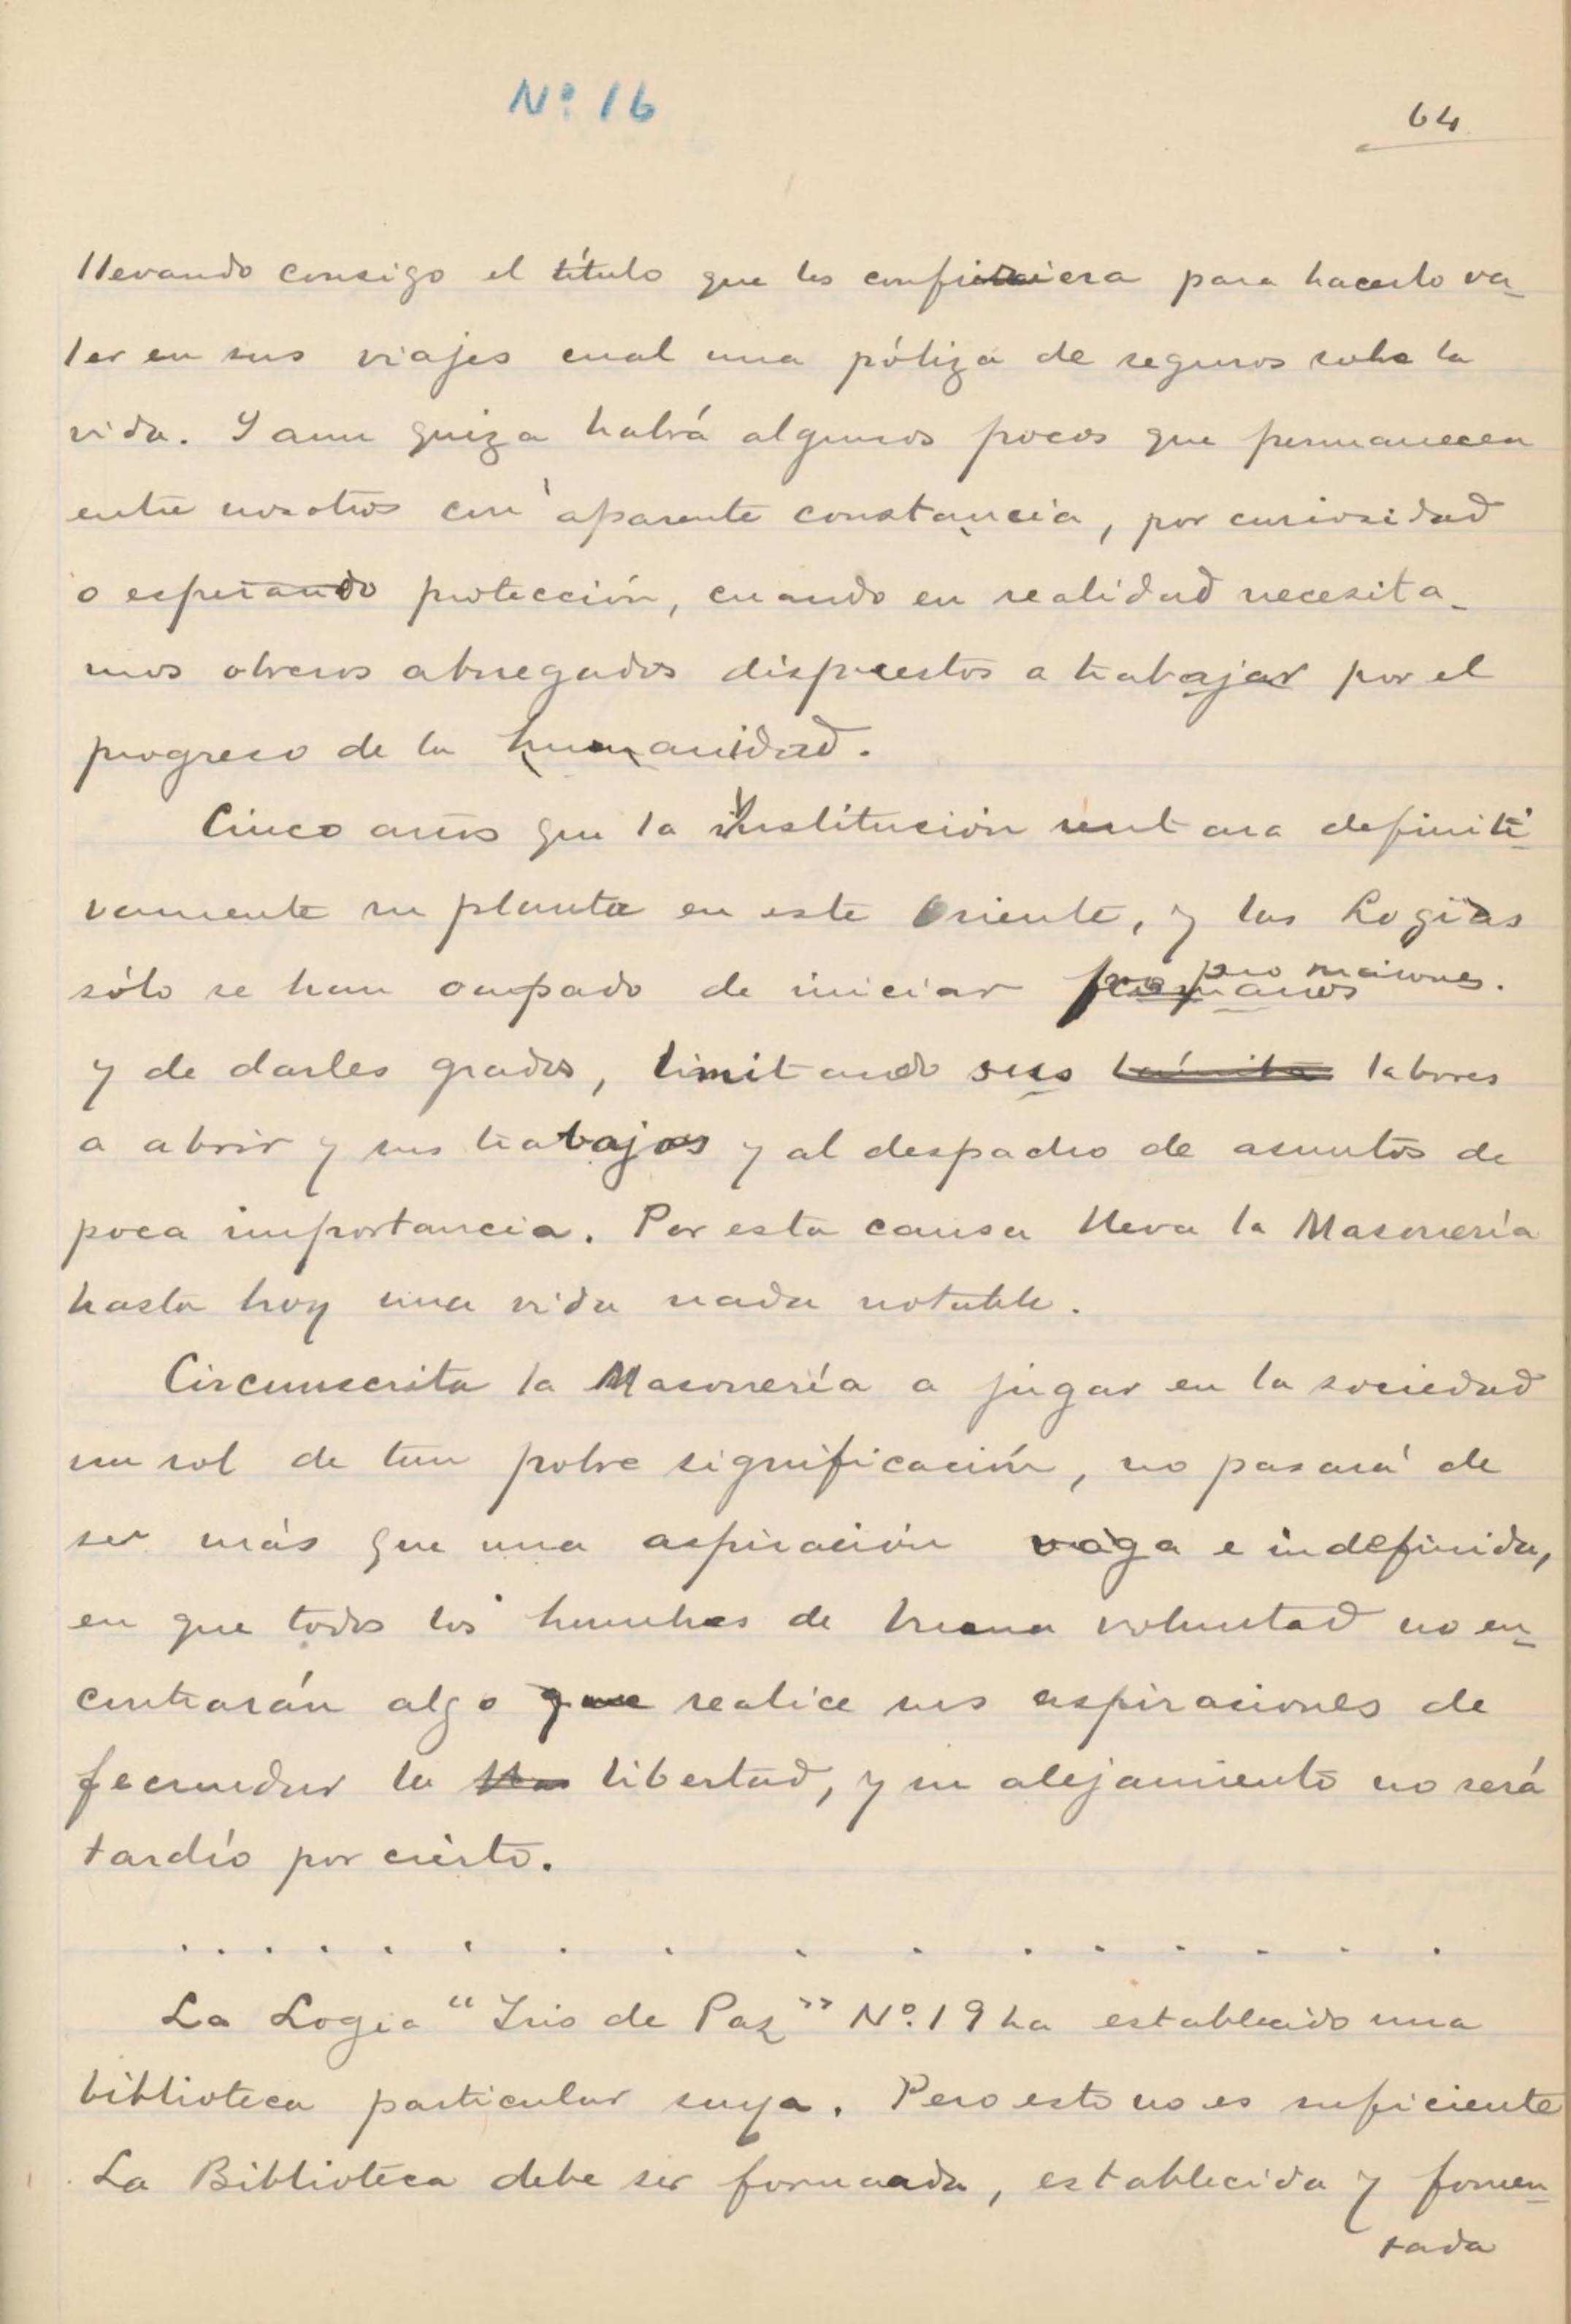 Nº 16
64
llevando consigo el título que les confiriera para hacerlo va-
ler en sus viajes cual una póliza de seguros sobre la
vida. Y aun quiza habrá algunos pocos que permanecen
entre nosotros con aparente constancia, por curiosidad
o esperando protección, cuando en realidad necesita-
mos obreros abnegados dispuestos a trabajar por el
progreso de la humanidad.
Cinco años que la institución sentara definiti-
vamente su planta en este Oriente, y las Logias
sólo se han ocupado de iniciar
y de darles grados, limitando sus labores
a abrir y sus trabajos y al despacho de asuntos de
poca importancia. Por esta causa lleva la Masonería
hasta hoy una vida nada notable.
Circunscrita la Masonería a jugar en la sociedad
un rol de tan pobre significación, no pasará de
ser más que una aspiración vaga e indefinida,
en que todos los hombres de buena voluntad no en-
contrarán algo que realice sus aspiraciones de
fecundar la libertad, y su alejamiento no será
tardío por cierto.
. . . . . . . . . . . . . . . . .
La Logia "Iris de Paz" Nº 19 ha establecido una
biblioteca particular suya. Pero esto no es suficiente
La Biblioteca debe ser formada, establecida y fomen-
tada